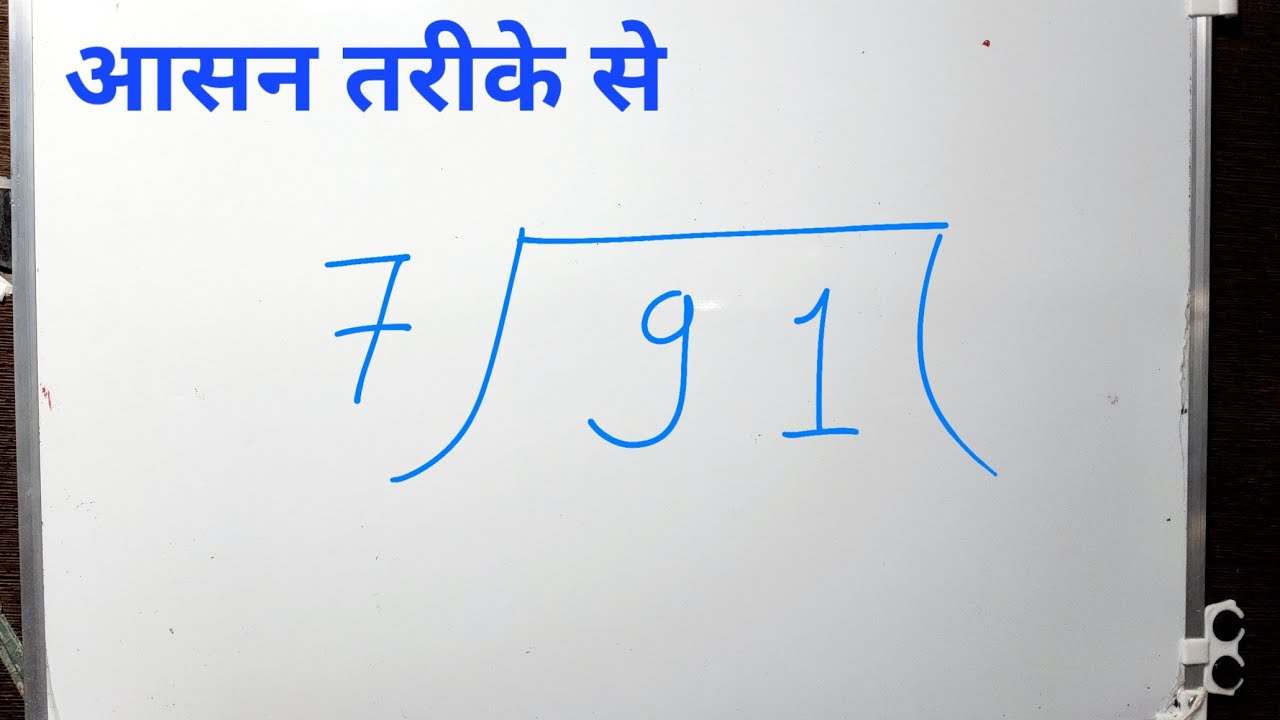 आसन तरीके से
7 91